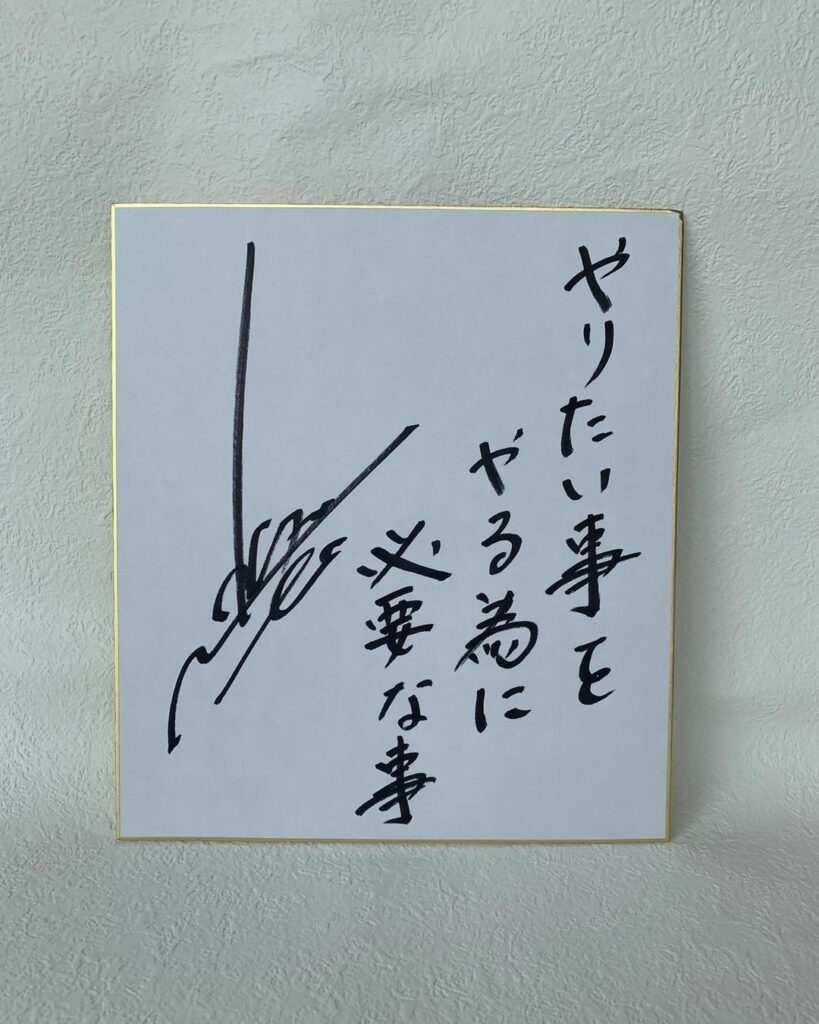 やりたい事を
やる為に
必要な事